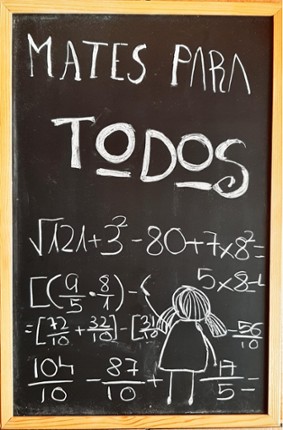 MATES PARA
TODOS
√121+3²-80+7×8²=
[(9/5·8/1)-( 5×8-
=[72/10+32/10]-[ -56/10
104/10-87/10+ 17/5=